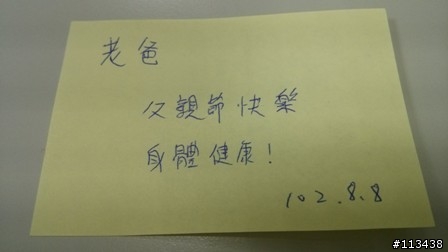 老爸
父親節快樂
身體健康！
102.8.8
#113438